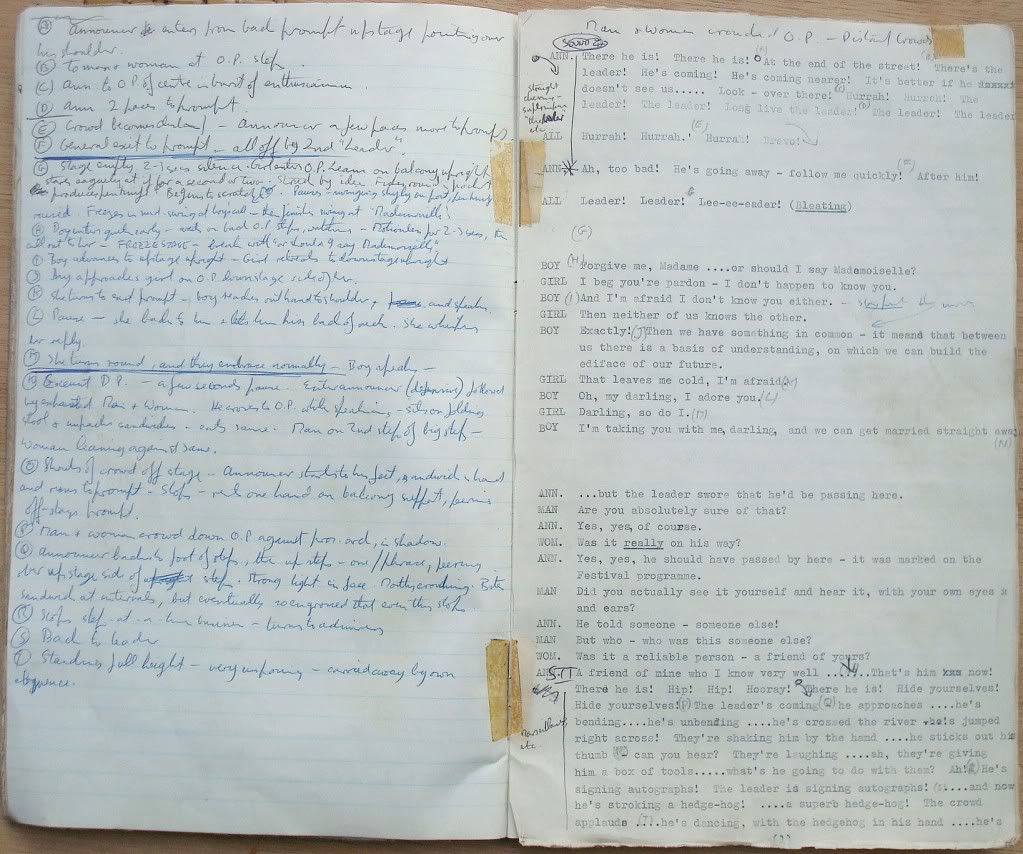 (A) announcer enters from back prompt upstage pointing over
his shoulder.
(B) to man & woman at O.P. step.
(C) Ann. to O.P. of centre in burst of enthusiasm
(D) Ann 2 paces to prompt.
(E) Crowd becomes distant – announcer a few paces more to prompt.
(F) General exit to prompt – all off by 2nd "Leader".
(G) Stage empty 2-3 secs silence. Girl enters O.P. leans on balcony upright
stares vaguely at it for a second or two – struck by idea pocket
produce penknife. Begins to scratch Pause – swinging on post, penknife
raised. Freezes in mid-swing at – then finishes swing at "Mademoiselle"
(H) Boy enters quietly – on back O.P. steps, – Motionless for 2-3 secs, then
call out to her – FREEZE – break with "or should I say Mademoiselle"
(I) Boy advances to upstage upright – Girl retreats to downstage upright
(J) Boy approaches girl on O.P. downstage side of her.
(K) She turns to exit prompt – boy reaches out hand to shoulder, and speaks.
(L) Pause – she back to him & lets him kiss back of neck. She whispers
her reply.
(M) She turns round, and they embrace normally – Boy speaks –
(N) Exeunt O.P. – a few seconds pause. Enter announcer (defensive) followed
by exhausted Man & Woman. He crosses to O.P. while speaking, – sits on folding
stool & unpacks sandwiches – eats same. Man on 2nd step of big steps –
Woman leaning against same.
(O) Shouts of crowd off stage .. Announcer starts to his feet, sandwich in hand
and runs to prompt – stops – rests one hand on balcony support, peering
off-stage prompt.
(P) Man & woman crowd down O.P. against pros. arch, in shadow.
(Q) announcer back to foot of steps, then up steps – one / phrase, peering
over upstage side of steps. Strong light in face. Both crouching. Bites
sandwich at intervals, but eventually so engrossed that even this stops.
(R) Stops step-at-a-time business – turns to admirers
(S) Back to leader
(T) Stands full height – very imposing – carried away by own
eloquence.
Man & Woman crouch d O.P – Distant Crowds
SOUND
ANN. There he is! There he is! (A) At the end of the street! There's the
leader! He's coming! He's coming nearer! It's better if he
doesn't see us..... Look – over there! (C) Hurrah! Hurrah! The
leader! The leader! Long live the leader! (D) The leader! The leader
straight
cheering –
"the leader"
etc
ALL Hurrah! Hurrah! (E) Hurrah! Bravo!
ANN. Ah, too bad! He's going away – follow me quickly! (F) After him!
ALL Leader! Leader! Lee-ee-eader! (Bleating)
(G)
BOY (H) Forgive me, Madame ....or should I say Mademoiselle?
GIRL I beg you're pardon – I don't happen to know you.
BOY (I) And I'm afraid I don't know you either.
GIRL Then neither of us knows the other.
BOY Exactly! (J) Then we have something in common – it meand that between
us there is a basis of understanding, on which we can build the
ediface of our future.
GIRL That leaves me cold, I'm afraid (K)
BOY Oh, my darling, I adore you. (L)
GIRL Darling, so do I. (M)
BOY I'm taking you with me, darling, and we can get married straight away
(N)
ANN. ...but the leader swore that he'd be passing here.
MAN Are you absolutely sure of that?
ANN. Yes, yes, of course.
WOM. Was it really on his way?
ANN. Yes, yes, he should have passed by here – it was marked on the
Festival programme.
MAN Did you actually see it yourself and hear it, with your own eyes
and ears?
ANN. He told someone – someone else!
MAN But who – who was this someone else?
WOM. Was it a reliable person – a friend of yours?
ANN A friend of mine who I know very well .......That's him xxx now!
There he is! Hip! Hip! Hooray! There he is! Hide yourselves!
Hide yourselves! (P) The leader's coming (Q) he approaches ....he's
bending....he's unbending ....he's crossed the river .he's jumped
right across! They're shaking him by the hand ....he sticks out his
thumb – can you hear? They're laughing ....ah, they're giving
him a box of tools.....what's he going to do with them? Ah! (R) He's
signing autographs! The leader is signing autographs! (S)....and now
he's stroking a hedge-hog! ....a superb hedge-hog! The crowd
applauds .(T)..he's dancing, with the hedgehog in his hand ....he's
Marseillaise
etc